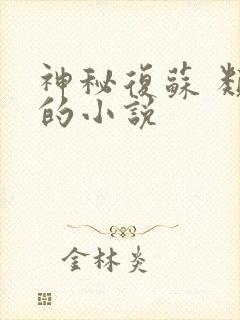 神秘復蘇
的小説
金林炎